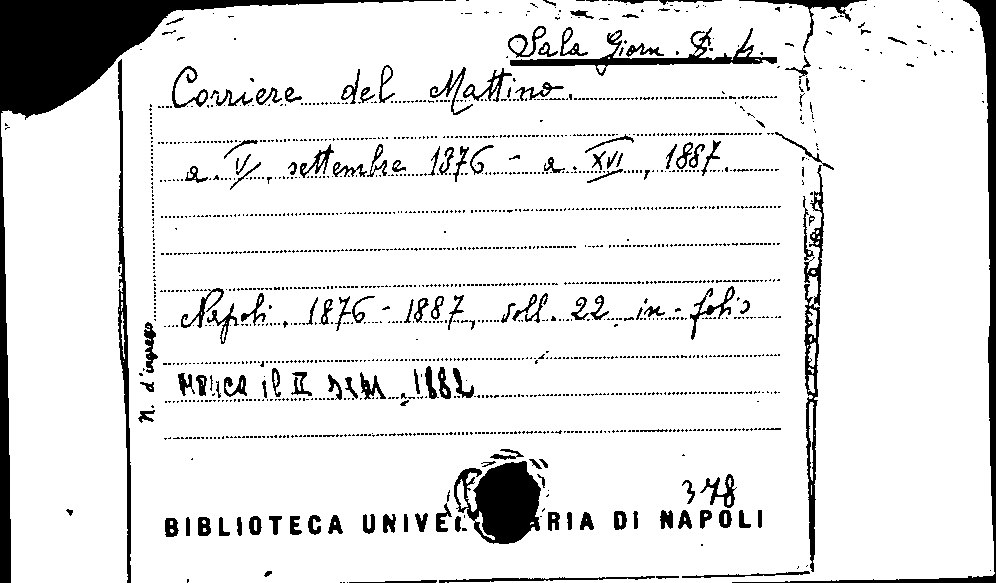 Sala Giorn. D. 4.
Corriere del Mattino.
a. V, settembre 1876 - a. XVI, 1887.
Napoli, 1876 - 1887, voll. 22 in-folio
Manca il II sem. 1882
N. d'ingresso
378
BIBLIOTECA UNIVE ARIA DI NAPOLI